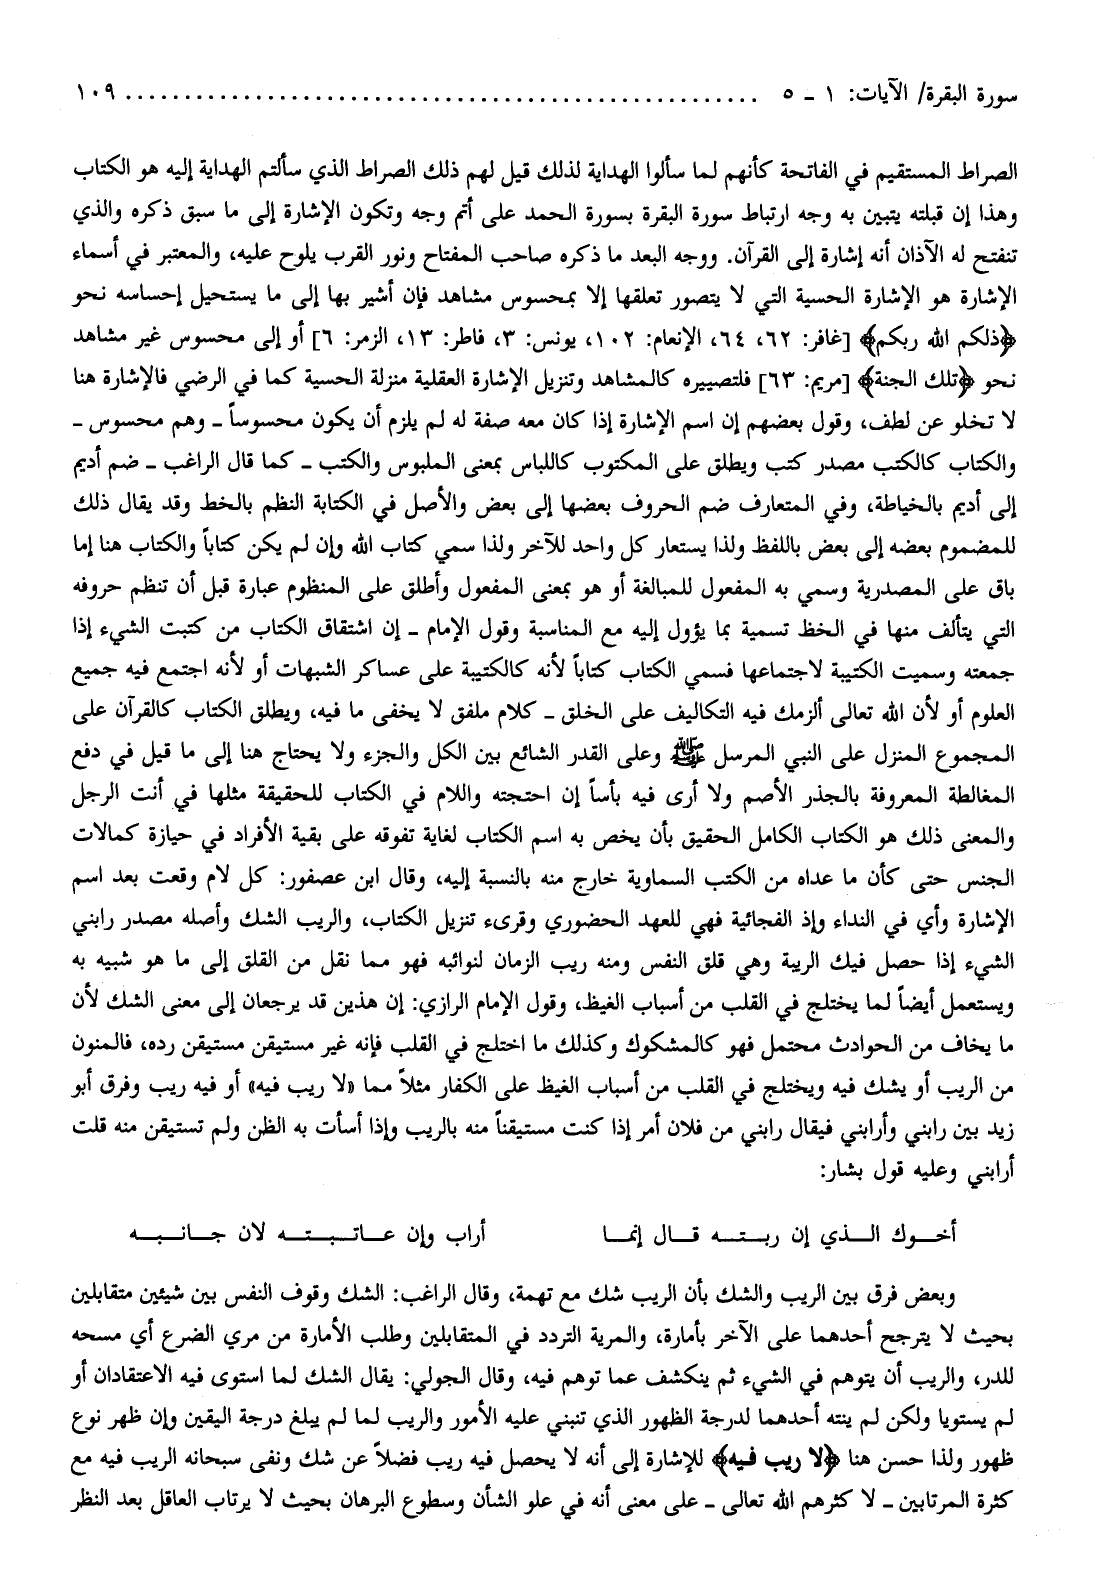 سورة البقرة/ الآيات: ١ ـ ٥ ........................................................ ١٠٩
الصراط المستقيم في الفاتحة كأنهم لما سألوا الهداية لذلك قيل لهم ذلك الصراط الذي سألتم الهداية إليه هو الكتاب
وهذا إن قبلته يتبين به وجه ارتباط سورة البقرة بسورة الحمد على أتم وجه وتكون الإشارة إلى ما سبق ذكره والذي
تنفتح له الآذان أنه إشارة إلى القرآن. ووجه البعد ما ذكره صاحب المفتاح ونور القرب يلوح عليه، والمعتبر في أسماء
الإشارة هو الإشارة الحسية التي لا يتصور تعلقها إلا بمحسوس مشاهد فإن أشير بها إلى ما يستحيل إحساسه نحو
﴿ذلكم الله ربكم﴾ [غافر: ٦٢، ٦٤، الإنعام: ١٠٢، يونس: ٣، فاطر: ١٣، الزمر: ٦] أو إلى محسوس غير مشاهد
نحو ﴿تلك الجنة﴾ [مريم: ٦٣] فلتصييره كالمشاهد وتنزيل الإشارة العقلية منزلة الحسية كما في الرضي فالإشارة هنا
لا تخلو عن لطف، وقول بعضهم إن اسم الإشارة إذا كان معه صفة له لم يلزم أن يكون محسوساً ـ وهم محسوس ـ
والكتاب كالكتب مصدر كتب ويطلق على المكتوب كاللباس بمعنى الملبوس والكتب ـ كما قال الراغب ـ ضم أديم
إلى أديم بالخياطة، وفي المتعارف ضم الحروف بعضها إلى بعض والأصل في الكتابة النظم بالخط وقد يقال ذلك
للمضموم بعضه إلى بعض باللفظ ولذا يستعار كل واحد للآخر ولذا سمي كتاب الله وإن لم يكن كتاباً والكتاب هنا إما
باق على المصدرية وسمي به المفعول للمبالغة أو هو بمعنى المفعول وأطلق على المنظوم عبارة قبل أن تنظم حروفه
التي يتألف منها في الخظ تسمية بما يؤول إليه مع المناسبة وقول الإمام ـ إن اشتقاق الكتاب من كتبت الشيء إذا
جمعته وسميت الكتيبة لاجتماعها فسمي الكتاب كتاباً لأنه كالكتيبة على عساكر الشبهات أو لأنه اجتمع فيه جميع
العلوم أو لأن الله تعالى ألزمك فيه التكاليف على الخلق ـ كلام ملفق لا يخفى ما فيه، ويطلق الكتاب كالقرآن على
المجموع المنزل على النبي المرسل ﷺ وعلى القدر الشائع بين الكل والجزء ولا يحتاج هنا إلى ما قيل في دفع
المغالطة المعروفة بالجذر الأصم ولا أرى فيه بأساً إن احتجته واللام في الكتاب للحقيقة مثلها في أنت الرجل
والمعنى ذلك هو الكتاب الكامل الحقيق بأن يخص به اسم الكتاب لغاية تفوقه على بقية الأفراد في حيازة كمالات
الجنس حتى كأن ما عداه من الكتب السماوية خارج منه بالنسبة إليه، وقال ابن عصفور: كل لام وقعت بعد اسم
الإشارة وأي في النداء وإذ الفجائية فهي للعهد الحضوري وقرىء تنزيل الكتاب، والريب الشك وأصله مصدر رابني
الشيء إذا حصل فيك الريبة وهي قلق النفس ومنه ريب الزمان لنوائبه فهو مما نقل من القلق إلى ما هو شبيه به
ويستعمل أيضاً لما يختلج في القلب من أسباب الغيظ، وقول الإمام الرازي: إن هذين قد يرجعان إلى معنى الشك لأن
ما يخاف من الحوادث محتمل فهو كالمشكوك وكذلك ما اختلج في القلب فإنه غير مستيقن مستيقن رده، فالمنون
من الريب أو يشك فيه ويختلج في القلب من أسباب الغيظ على الكفار مثلاً مما «لا ريب فيه» أو فيه ريب وفرق أبو
زيد بين رابني وأرابني فيقال رابني من فلان أمر إذا كنت مستيقناً منه بالريب وإذا أسأت به الظن ولم تستيقن منه قلت
أرابني وعليه قول بشار:
أخوك الذي إن ربته قال إنما أراب وإن عاتبته لان جانبه
وبعض فرق بين الريب والشك بأن الريب شك مع تهمة، وقال الراغب: الشك وقوف النفس بين شيئين متقابلين
بحيث لا يترجح أحدهما على الآخر بأمارة، والمرية التردد في المتقابلين وطلب الأمارة من مري الضرع أي مسحه
للدر، والريب أن يتوهم في الشيء ثم ينكشف عما توهم فيه، وقال الجولي: يقال الشك لما استوى فيه الاعتقادان أو
لم يستويا ولكن لم ينته أحدهما لدرجة الظهور الذي تنبني عليه الأمور والريب لما لم يبلغ درجة اليقين وإن ظهر نوع
ظهور ولذا حسن هنا ﴿لا ريب فيه﴾ للإشارة إلى أنه لا يحصل فيه ريب فضلاً عن شك ونفى سبحانه الريب فيه مع
كثرة المرتابين ـ لا كثرهم الله تعالى ـ على معنى أنه في علو الشأن وسطوع البرهان بحيث لا يرتاب العاقل بعد النظر